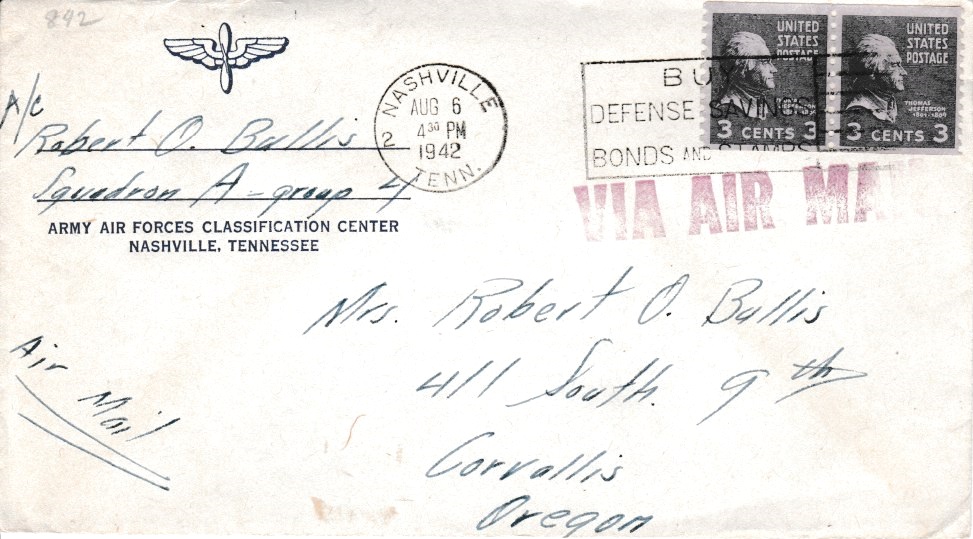 892
A/C
Robert O. Bullis
Squadron A - group 4
ARMY AIR FORCES CLASSIFICATION CENTER
NASHVILLE, TENNESSEE
NASHVILLE
AUG 6
4 30 PM
2
1942
TENN.
BUY
DEFENSE SAVINGS
BONDS AND STAMPS
UNITED
STATES
POSTAGE
3 CENTS 3
UNITED
STATES
POSTAGE
THOMAS
JEFFERSON
1801-1809
3 CENTS 3
VIA AIR MA
Mrs. Robert O. Bullis
411 South. 9th
Corvallis
Oregon
Air
Mail